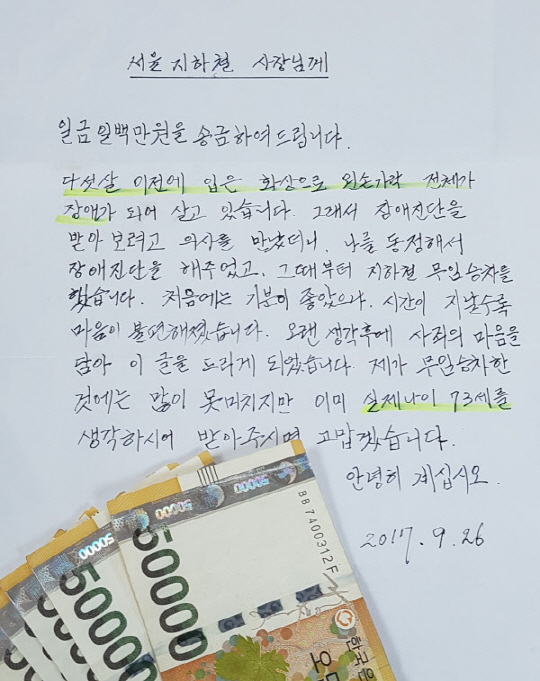 서울 지하철 사장님께
일금 일백만원을 송금하여 드립니다.
다섯살 이전에 입은 화상으로 왼손가락 전체가
장애가 되어 살고 있습니다. 그래서 장애진단을
받아 보려고 의사를 만났더니, 나를 동정해서
장애진단을 해주었고, 그때부터 지하철 무임승차를
했습니다. 처음에는 기분이 좋았으나, 시간이 지날수록
마음이 불편해졌습니다. 오랜 생각후에 사죄의 마음을
담아 이 글을 드리게 되었습니다. 제가 무임승차한
것에는 많이 못미치지만 이미 실제나이 73세를
생각하시어 받아주시면 고맙겠습니다.
안녕히 계십시오.
2017. 9. 26
BB7400312F
50000
50000
50000
50000
50000
한국은
오만